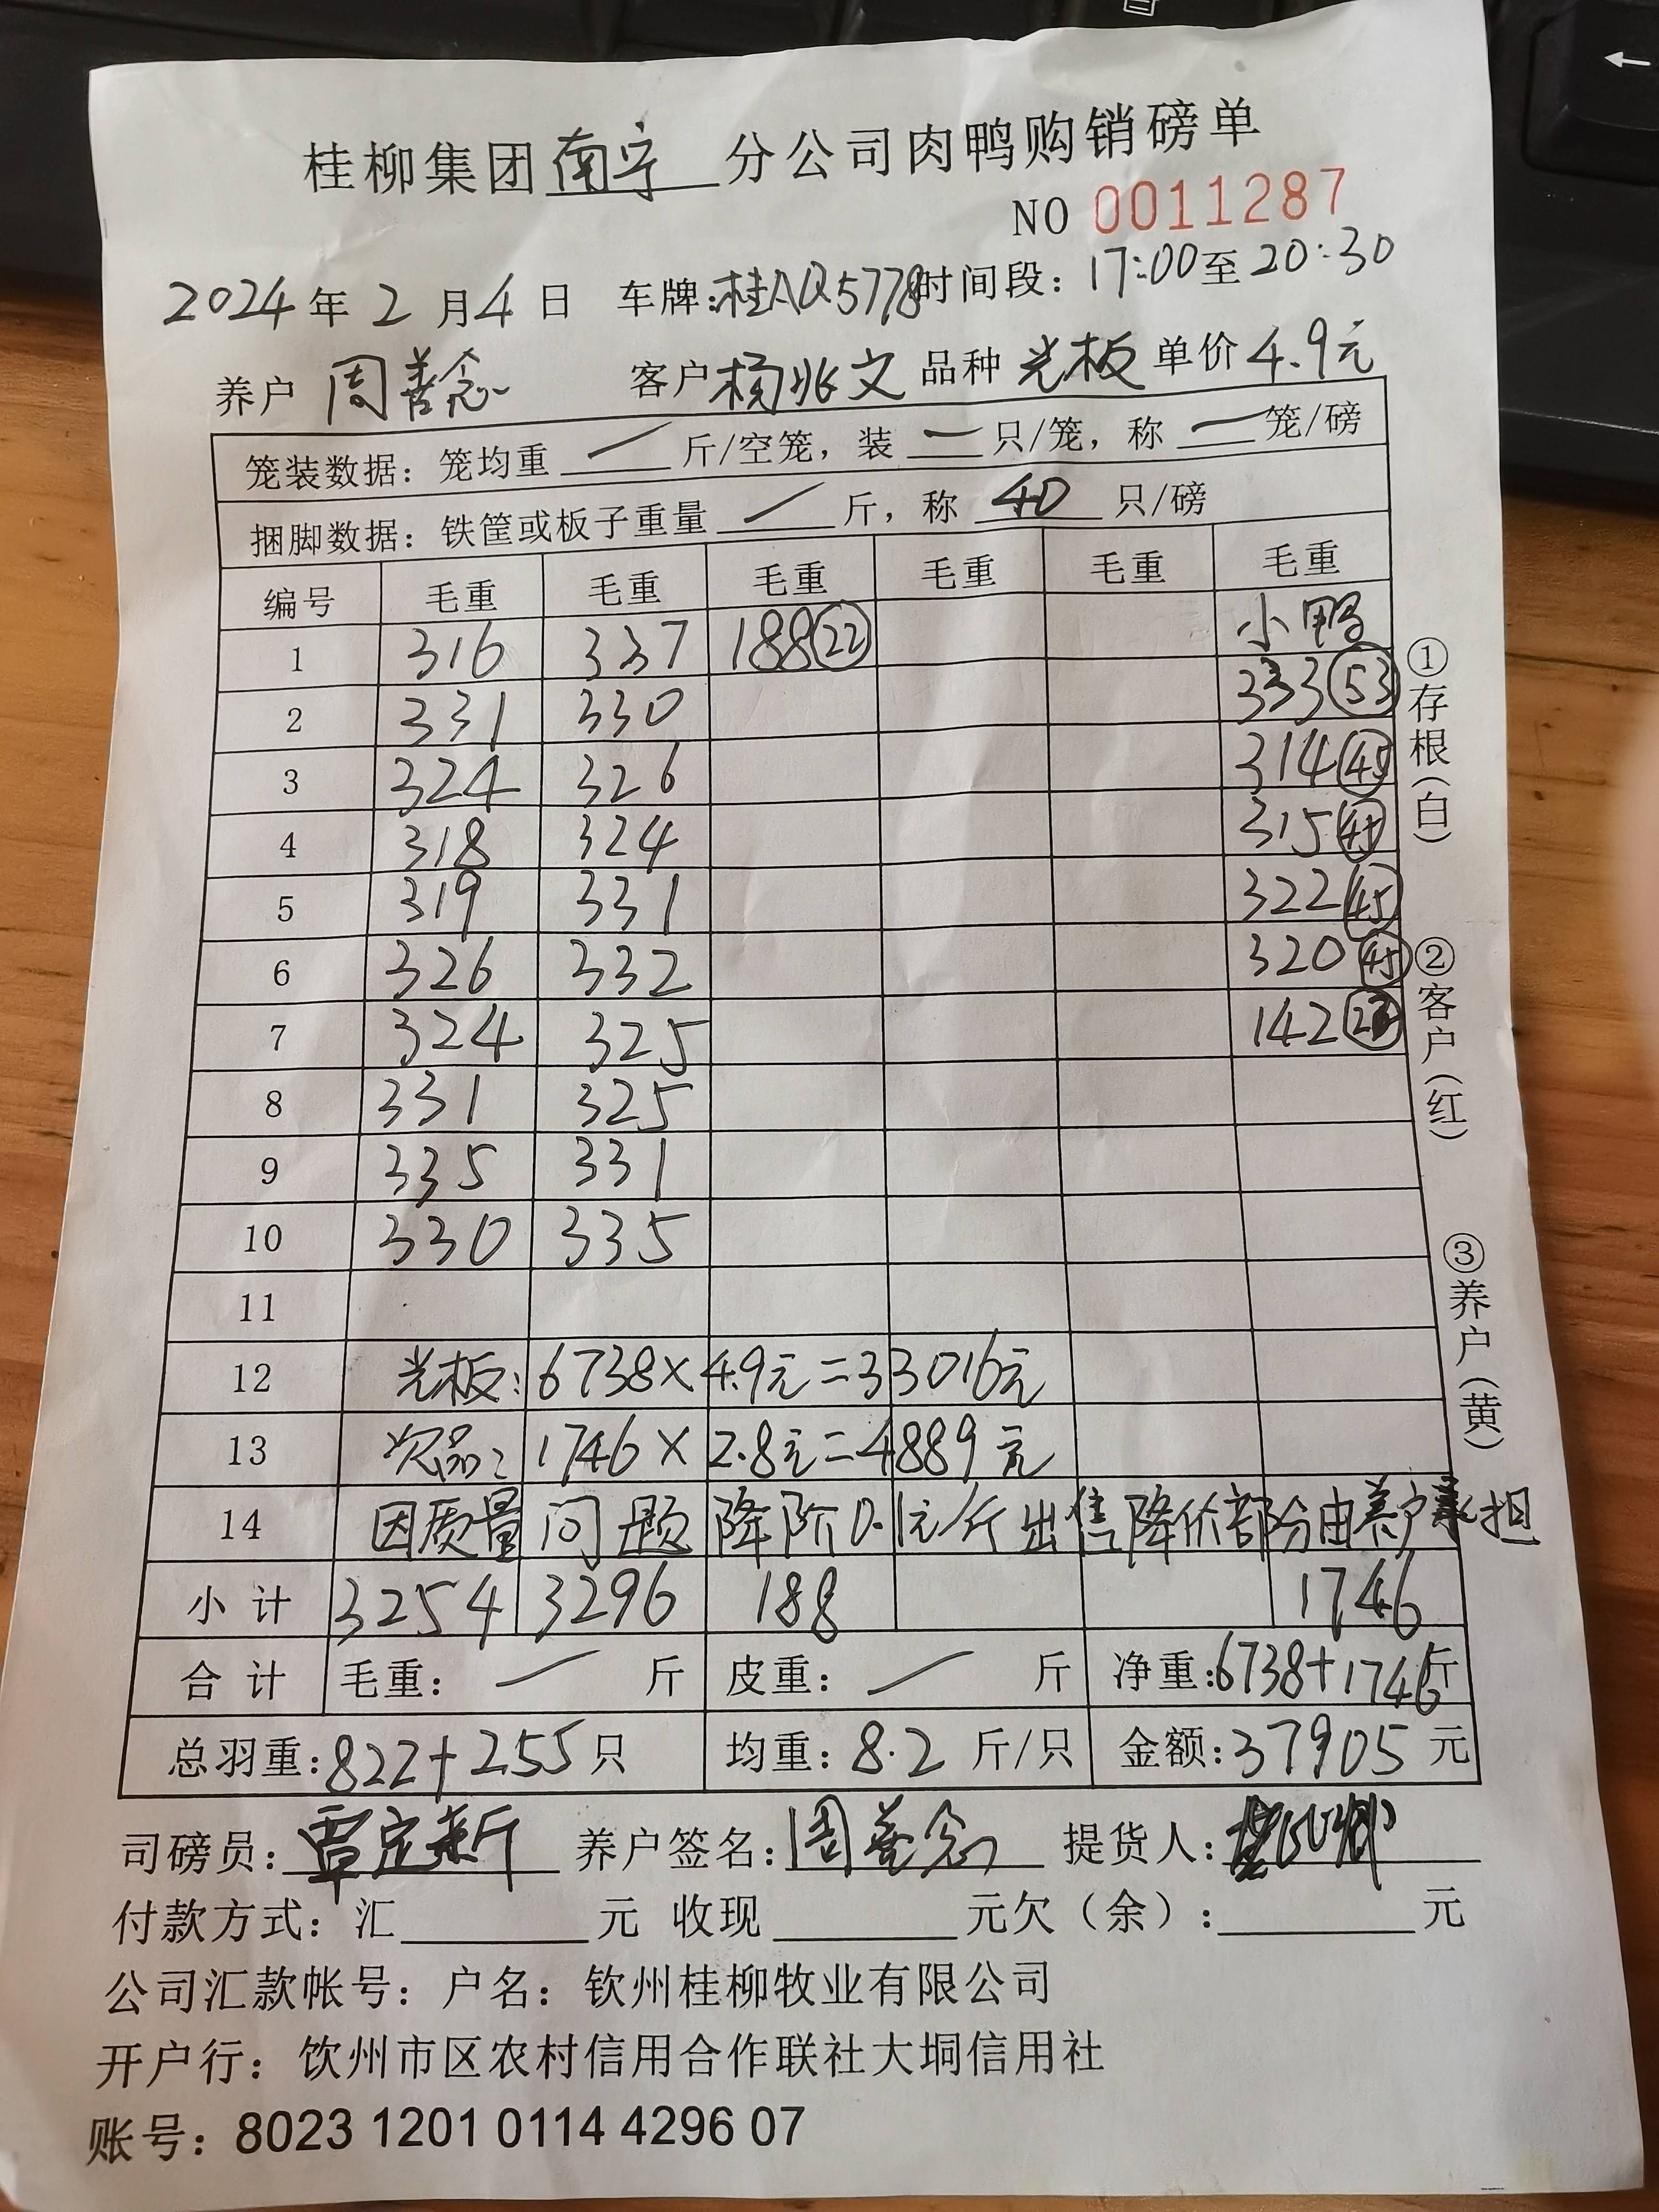 桂柳集团南宁分公司肉鸭购销磅单
NO 0011287
2024年2月4日 车牌:桂AQ5778 时间段:17:00至20:30
养户 周善念 客户 杨兆文 品种 光板 单价 4.9元
笼装数据:笼均重 / 斤/空笼,装 一 只/笼,称 一 笼/磅
捆脚数据:铁筐或板子重量 / 斤,称 40 只/磅
编号 毛重 毛重 毛重 毛重 毛重 毛重
1 316 337 188㉒ 小鸭
2 331 330 333(53)
3 324 326 314(45)
4 318 324 315(45)
5 319 331 322(45)
6 326 332 320(45)
7 324 325 142
8 331 325
9 335 331
10 330 335
11
12 光板:6738×4.9元=33016元
13 次品:1746×2.8元=4889元
14 因质量问题降阶0.1元/斤出售降价部分由养户承担
小计 3254 3296 188 1746
合计 毛重: / 斤 皮重: / 斤 净重:6738+1746斤
总羽重:822+255只 均重:8.2斤/只 金额:37905元
司磅员:覃定新 养户签名:周善念 提货人:
付款方式:汇 元 收现 元欠(余): 元
公司汇款帐号:户名:钦州桂柳牧业有限公司
开户行:饮州市区农村信用合作联社大垌信用社
账号:8023 1201 0114 4296 07
①存根(白)
②客户(红)
③养户(黄)